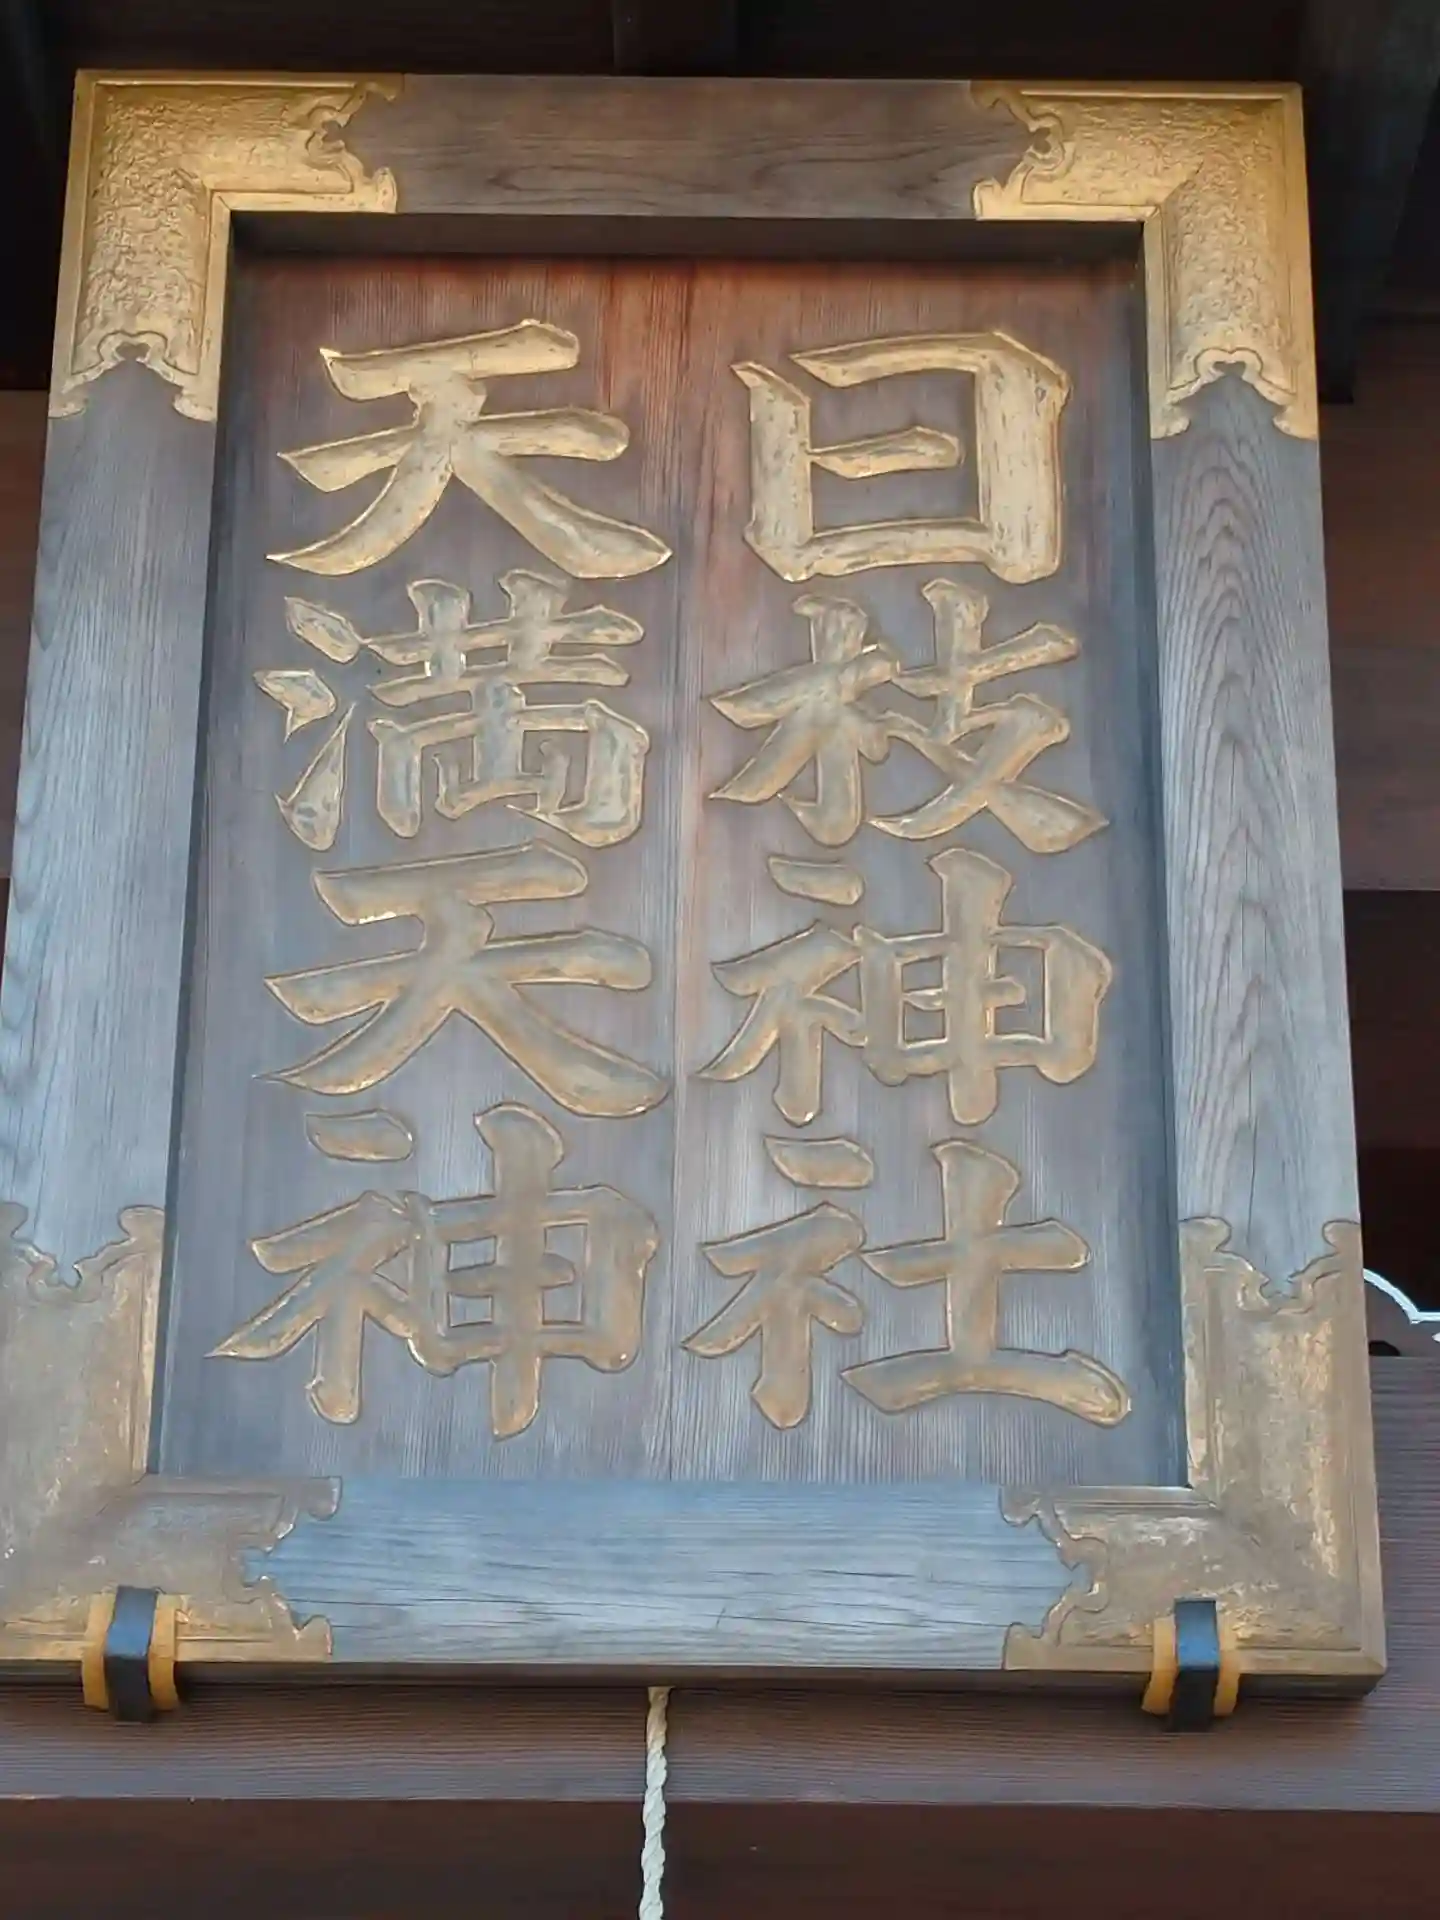 日枝神社
天満天神